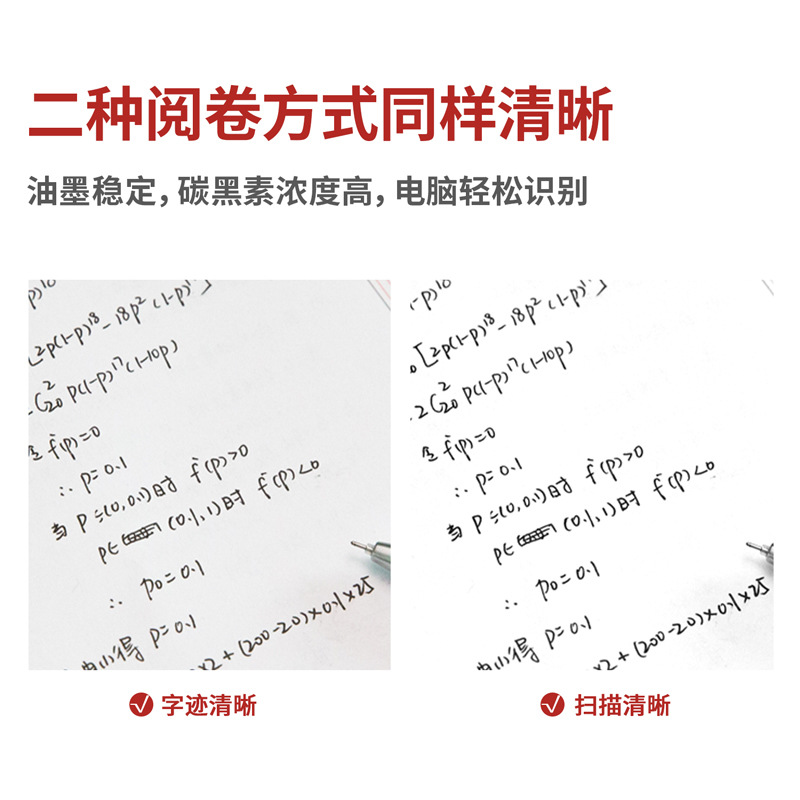 二种阅卷方式同样清晰
油墨稳定，碳黑素浓度高，电脑轻松识别
-p)¹⁰
[2p(1-p)¹⁸-18p²(1-p)¹⁷]
2C²₂₀ p(1-p)¹⁷(1-10p)
令 f'(p)=0
∴ p=0.1
当 P∈(0,0.1)时 f'(p)>0
p∈ (0.1,1)时 f'(p)<0
∴ p₀=0.1
由(1)得 p=0.1
×2+(200-20)×0.1×25
-p)¹⁰
[2p(1-p)¹⁸-18p²(1-p)¹⁷]
.2C²₂₀ p(1-p)¹⁷(1-10p)
令 f'(p)=0
∴ p=0.1
当 P∈(0,0.1)时 f'(p)>0
p∈ (0.1,1)时 f'(p)<0
∴ p₀=0.1
由(1)得 p=0.1
×2+(200-20)×0.1×25
字迹清晰
扫描清晰